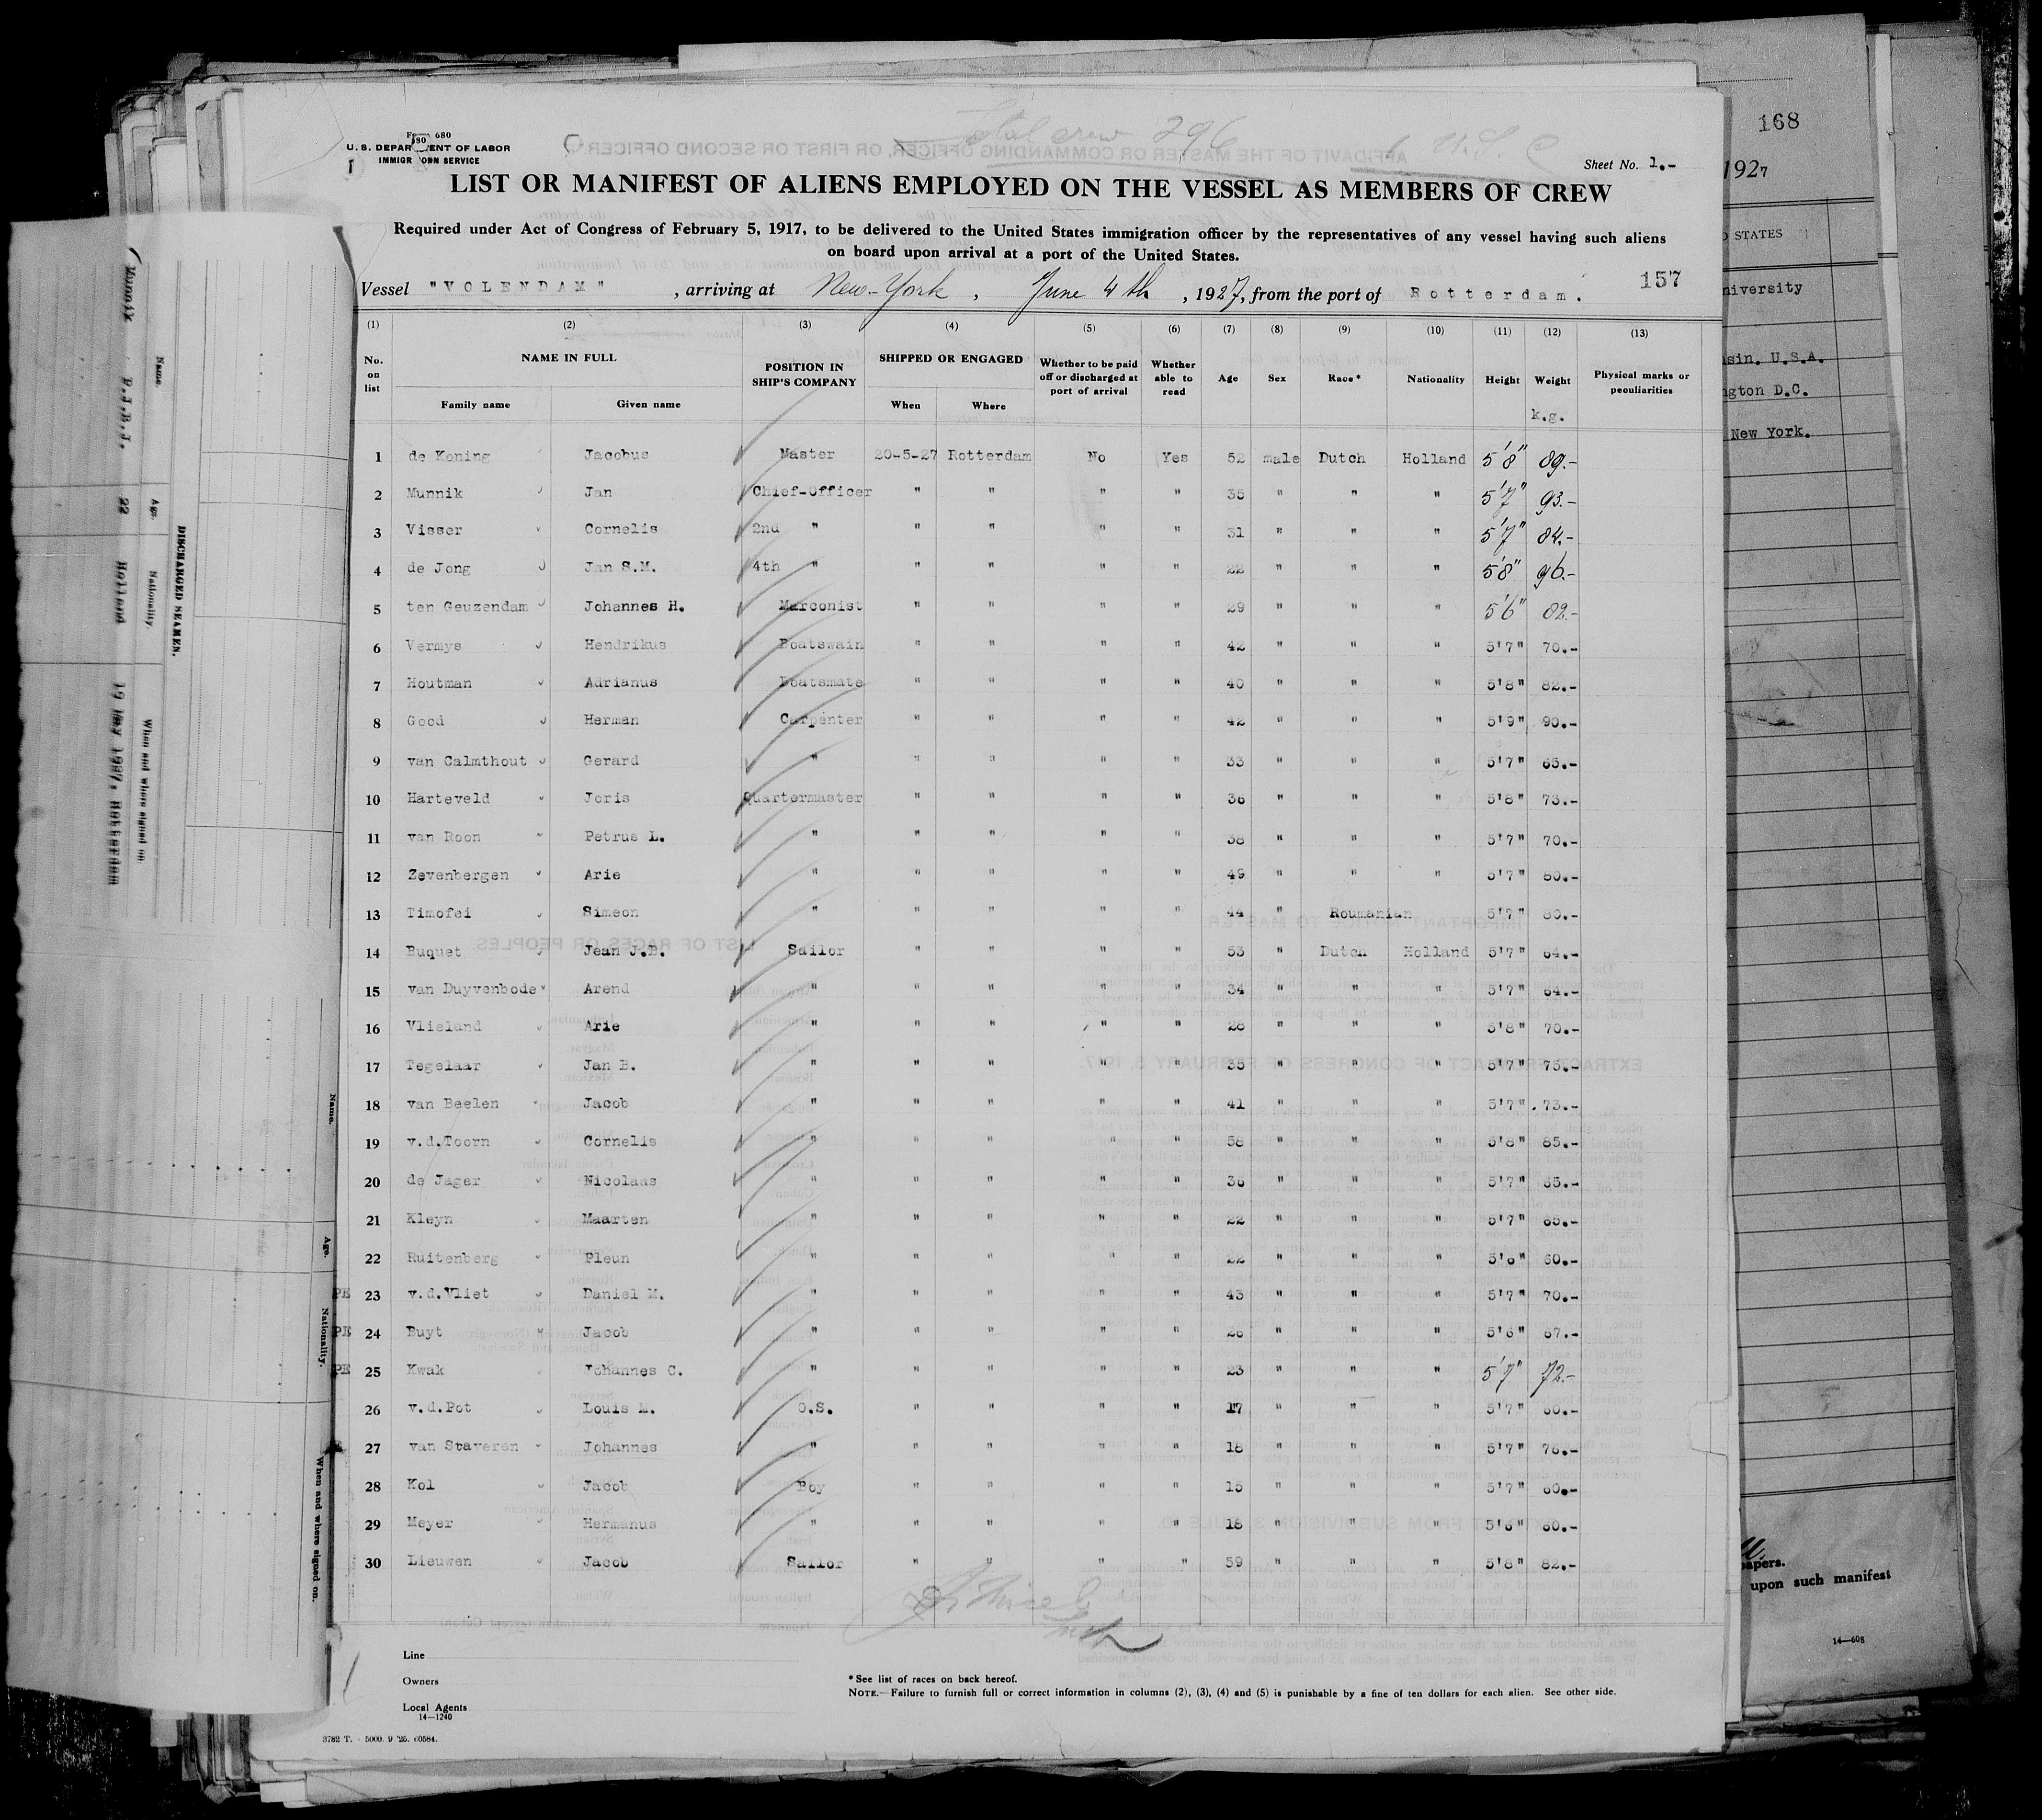 Form 680
U. S. DEPARTMENT OF LABOR
IMMIGRATION SERVICE
Total crew 296
Sheet No. 1.-
LIST OR MANIFEST OF ALIENS EMPLOYED ON THE VESSEL AS MEMBERS OF CREW
Required under Act of Congress of February 5, 1917, to be delivered to the United States immigration officer by the representatives of any vessel having such aliens
on board upon arrival at a port of the United States.
Vessel "VOLENDAM" , arriving at New-York , June 4th , 1927, from the port of Rotterdam.
157
(1) (2) (3) (4) (5) (6) (7) (8) (9) (10) (11) (12) (13)
No. on list NAME IN FULL Family name Given name POSITION IN SHIP'S COMPANY SHIPPED OR ENGAGED When Where Whether to be paid off or discharged at port of arrival Whether able to read Age Sex Race* Nationality Height Weight k.g. Physical marks or peculiarities
1 de Koning Jacobus Master 20-5-27 Rotterdam No Yes 52 male Dutch Holland 5'8" 89.-
2 Munnik Jan Chief-Officer " " " " 35 " " " 5'7" 93.-
3 Visser Cornelis 2nd " " " " " 31 " " " 5'7" 84.-
4 de Jong Jan S.M. 4th " " " " " 22 " " " 5'8" 96.-
5 ten Geuzendam Johannes H. Marconist " " " " 29 " " " 5'6" 82.-
6 Vermys Hendrikus Boatswain " " " " 42 " " " 5'7" 70.-
7 Houtman Adrianus Boatsmate " " " " 40 " " " 5'8" 82.-
8 Goed Herman Carpenter " " " " 42 " " " 5'9" 90.-
9 van Calmthout Gerard " " " " " 33 " " " 5'7" 65.-
10 Harteveld Joris Quartermaster " " " " 36 " " " 5'8" 73.-
11 van Roon Petrus L. " " " " " 38 " " " 5'7" 70.-
12 Zevenbergen Arie " " " " " 49 " " " 5'7" 80.-
13 Timofei Simeon " " " " " 44 " Roumanian 5'7" 80.-
14 Buquet Jean J.B. Sailor " " " " 53 " Dutch Holland 5'7" 64.-
15 van Duyvenbode Arend " " " " " 34 " " " 5'7" 64.-
16 Vlieland Arie " " " " " 28 " " " 5'8" 70.-
17 Tegelaar Jan B. " " " " " 35 " " " 5'7" 75.-
18 van Beelen Jacob " " " " " 41 " " " 5'7" 73.-
19 v.d.Toorn Cornelis " " " " " 58 " " " 5'8" 85.-
20 de Jager Nicolaas " " " " " 36 " " " 5'7" 65.-
21 Kleyn Maarten " " " " " 22 " " " 5'7" 65.-
22 Ruitenberg Pleun " " " " " 22 " " " 5'6" 60.-
PE 23 v.d.Vliet Daniel M. " " " " " 43 " " " 5'7" 70.-
PE 24 Buyt Jacob " " " " " 26 " " " 5'6" 67.-
PE 25 Kwak Johannes C. " " " " " 23 " " " 5'7" 72.-
26 v.d.Pot Louis M. O.S. " " " " 17 " " " 5'7" 60.-
27 van Staveren Johannes " " " " " 18 " " " 5'7" 76.-
28 Kol Jacob Boy " " " " 15 " " " 5'7" 60.-
29 Meyer Hermanus " " " " " 18 " " " 5'6" 60.-
30 Lieuwen Jacob Sailor " " " " 59 " " " 5'8" 82.-
Line
Owners
Local Agents
14—1240
*See list of races on back hereof.
NOTE.—Failure to furnish full or correct information in columns (2), (3), (4) and (5) is punishable by a fine of ten dollars for each alien. See other side.
3782 T. - 5000. 9 '25. 60584.
DISCHARGED SEAMEN.
Name. Age. Nationality. When and where signed on.
Munnix P.J.B.J. 22 Holland 19 May 1927, Rotterdam
Name. Age. Nationality. When and where signed on.
168
1927
STATES
niversity
sin, U.S.A.
ngton D.C.
New York.
papers.
upon such manifest
14—608